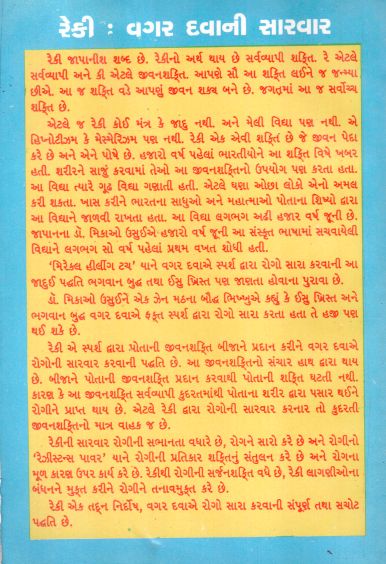 રેકી : વગર દવાની સારવાર
રેકી જાપાનીશ શબ્દ છે. રેકીનો અર્થ થાય છે સર્વવ્યાપી શક્તિ. રે એટલે
સર્વવ્યાપી અને કી એટલે જીવનશક્તિ. આપણે સૌ આ શક્તિ લઈને જ જન્મ્યા
છીએ. આ જ શક્તિ વડે આપણું જીવન શક્ય બને છે. જગતમાં આ જ સર્વોચ્ચ
શક્તિ છે.
એટલે જ રેકી કોઈ મંત્ર કે જાદુ નથી. અને મેલી વિદ્યા પણ નથી. એ
હિપ્નોટીઝમ કે મેસ્મેરિઝમ પણ નથી. રેકી એક એવી શક્તિ છે જે જીવન પેદા
કરે છે અને એને પોષે છે. હજારો વર્ષ પહેલાં ભારતીયોને આ શક્તિ વિષે ખબર
હતી. શરીરને સાજું કરવામાં તેઓ આ જીવનશક્તિનો ઉપયોગ પણ કરતા હતા.
આ વિદ્યા ત્યારે ગૂઢ વિદ્યા ગણાતી હતી. એટલે ઘણા ઓછા લોકો એનો અમલ
કરી શકતા. ખાસ કરીને ભારતના સાધુઓ અને મહાત્માઓ પોતાના શિષ્યો દ્વારા
આ વિદ્યાને જાળવી રાખતા હતા. આ વિદ્યા લગભગ અઢી હજાર વર્ષ જૂની છે.
જાપાનના ડૉ. મિકાઓ ઉસુઈએ હજારો વર્ષ જૂની આ સંસ્કૃત ભાષામાં સચવાયેલી
વિદ્યાને લગભગ સો વર્ષ પહેલાં પ્રથમ વખત શોધી હતી.
'મિરેકલ હીલીંગ ટચ' યાને વગર દવાએ સ્પર્શ દ્વારા રોગો સારા કરવાની આ
જાદુઈ પદ્ધતિ ભગવાન બુદ્ધ તથા ઈસુ ખ્રિસ્ત પણ જાણતા હોવાના પુરાવા છે.
ડૉ. મિકાઓ ઉસુઈને એક ઝેન મઠના બૌદ્ધ ભિખ્ખુએ કહ્યું કે ઈસુ ખ્રિસ્ત અને
ભગવાન બુદ્ધ વગર દવાએ ફક્ત સ્પર્શ દ્વારા રોગો સારા કરતા હતા તે હજી પણ
થઈ શકે છે.
રેકી એ સ્પર્શ દ્વારા પોતાની જીવનશક્તિ બીજાને પ્રદાન કરીને વગર દવાએ
રોગોની સારવાર કરવાની પદ્ધતિ છે. આ જીવનશક્તિનો સંચાર હાથ દ્વારા થાય
છે. બીજાને પોતાની જીવનશક્તિ પ્રદાન કરવાથી પોતાની શક્તિ ઘટતી નથી.
કારણ કે આ જીવનશક્તિ સર્વવ્યાપી કુદરતમાંથી પોતાના શરીર દ્વારા પસાર થઈને
રોગીને પ્રાપ્ત થાય છે. એટલે રેકી દ્વારા રોગોની સારવાર કરનાર તો કુદરતી
જીવનશક્તિનો માત્ર વાહક જ છે.
રેકીની સારવાર રોગીની સભાનતા વધારે છે, રોગને સારો કરે છે અને રોગીનો
'રેઝીસ્ટન્સ પાવર' યાને રોગીની પ્રતિકાર શક્તિનું સંતુલન કરે છે અને રોગના
મૂળ કારણ ઉપર કાર્ય કરે છે. રેકીથી રોગીની સર્જનશક્તિ વધે છે, રેકી લાગણીઓના
બંધનને મુક્ત કરીને રોગીને તનાવમુક્ત કરે છે.
રેકી એક તદ્દન નિર્દોષ, વગર દવાએ રોગો સારા કરવાની સંપૂર્ણ તથા સચોટ
પદ્ધતિ છે.